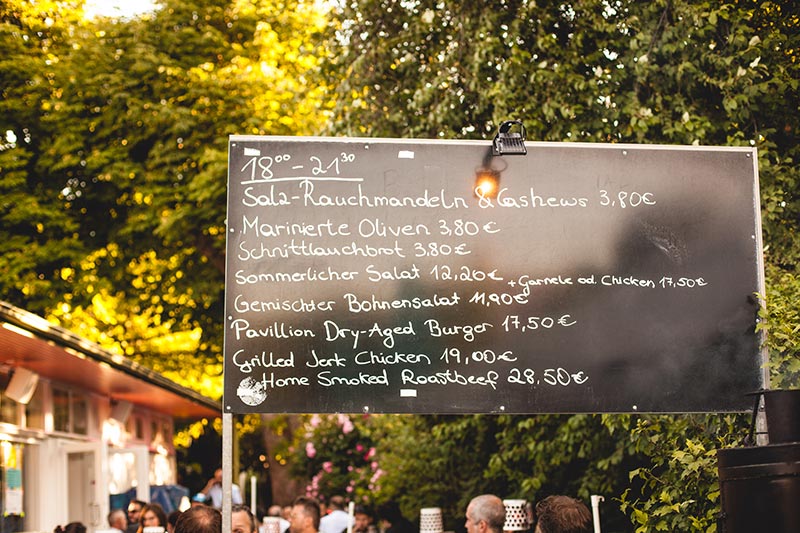 18⁰⁰ - 21³⁰
Salz-Rauchmandeln & Cashews 3,80€
Marinierte Oliven 3,80€
Schnittlauchbrot 3,80€
Sommerlicher Salat 12,20€ + Garnele od. Chicken 17,50€
Gemischter Bohnensalat 11,90€
Pavillion Dry-Aged Burger 17,50€
Grilled Jerk Chicken 19,00€
Home Smoked Roastbeef 28,50€